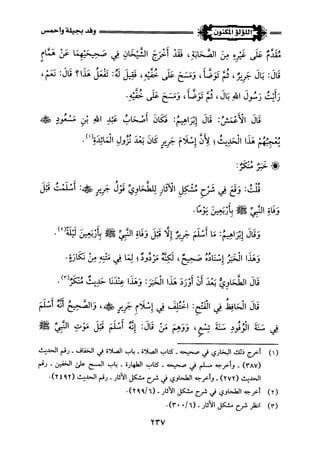 اللؤلؤ المكنون
وفد بجيلة وأحمس
مُقَدَّمٌ عَلَى غَيْرِهِ مِنَ الصَّحَابَةِ، فَقَدْ أَخْرَجَ الشَّيْخَانِ فِي صَحِيحَيْهِمَا عَنْ هَمَّامٍ
قَالَ: بَالَ جَرِيرٌ، ثُمَّ تَوَضَّأَ، وَمَسَحَ عَلَى خُفَّيْهِ، فَقِيلَ لَهُ: تَفْعَلُ هَذَا؟ قَالَ: نَعَمْ،
رَأَيْتُ رَسُولَ اللهِ بَالَ، ثُمَّ تَوَضَّأَ، وَمَسَحَ عَلَى خُفَّيْهِ.
قَالَ الْأَعْمَشُ: قَالَ إِبْرَاهِيمُ: فَكَانَ أَصْحَابُ عَبْدِ اللهِ بْنِ مَسْعُودٍ ﷺ
يُعْجِبُهُمْ هَذَا الْحَدِيثُ؛ لِأَنَّ إِسْلَامَ جَرِيرٍ كَانَ بَعْدَ نُزُولِ الْمَائِدَةِ(١).
❁ خَبَرٌ مُنْكَرٌ:
قُلْتُ: وَقَعَ فِي شَرْحِ مُشْكِلِ الْآثَارِ لِلطَّحَاوِيِّ قَوْلُ جَرِيرٍ: أَسْلَمْتُ قَبْلَ
وَفَاةِ النَّبِيِّ ﷺ بِأَرْبَعِينَ يَوْمًا.
وَقَالَ إِبْرَاهِيمُ: مَا أَسْلَمَ جَرِيرٌ إِلَّا قَبْلَ وَفَاةِ النَّبِيِّ ﷺ بِأَرْبَعِينَ لَيْلَةً(٢).
وَهَذَا الْخَبَرُ إِسْنَادُهُ صَحِيحٌ، لَكِنَّهُ مَرْدُودٌ؛ لِمَا فِي مَتْنِهِ مِنْ نَكَارَةٍ.
قَالَ الطَّحَاوِيُّ بَعْدَ أَنْ أَوْرَدَ هَذَا الْخَبَرَ: وَهَذَا عِنْدَنَا حَدِيثٌ مُنْكَرٌ(٣).
قَالَ الْحَافِظُ فِي الْفَتْحِ: اخْتُلِفَ فِي إِسْلَامِ جَرِيرٍ، وَالصَّحِيحُ أَنَّهُ أَسْلَمَ
فِي سَنَةِ الْوُفُودِ سَنَةَ تِسْعٍ، وَوَهِمَ مَنْ قَالَ: إِنَّهُ أَسْلَمَ قَبْلَ مَوْتِ النَّبِيِّ ﷺ
(١) أخرج ذلك البخاري في صحيحه ـ كتاب الصلاة ـ باب الصلاة في الخفاف ـ رقم الحديث
(٣٨٧) ـ وأخرجه مسلم في صحيحه ـ كتاب الطهارة ـ باب المسح على الخفين ـ رقم
الحديث (٢٧٢) ـ وأخرجه الطحاوي في شرح مشكل الآثار ـ رقم الحديث (٢٤٩٢).
(٢) أخرجه الطحاوي في شرح مشكل الآثار ـ (٢٩٩/٦).
(٣) انظر شرح مشكل الآثار ـ (٣٠٠/٦).
٢٣٧